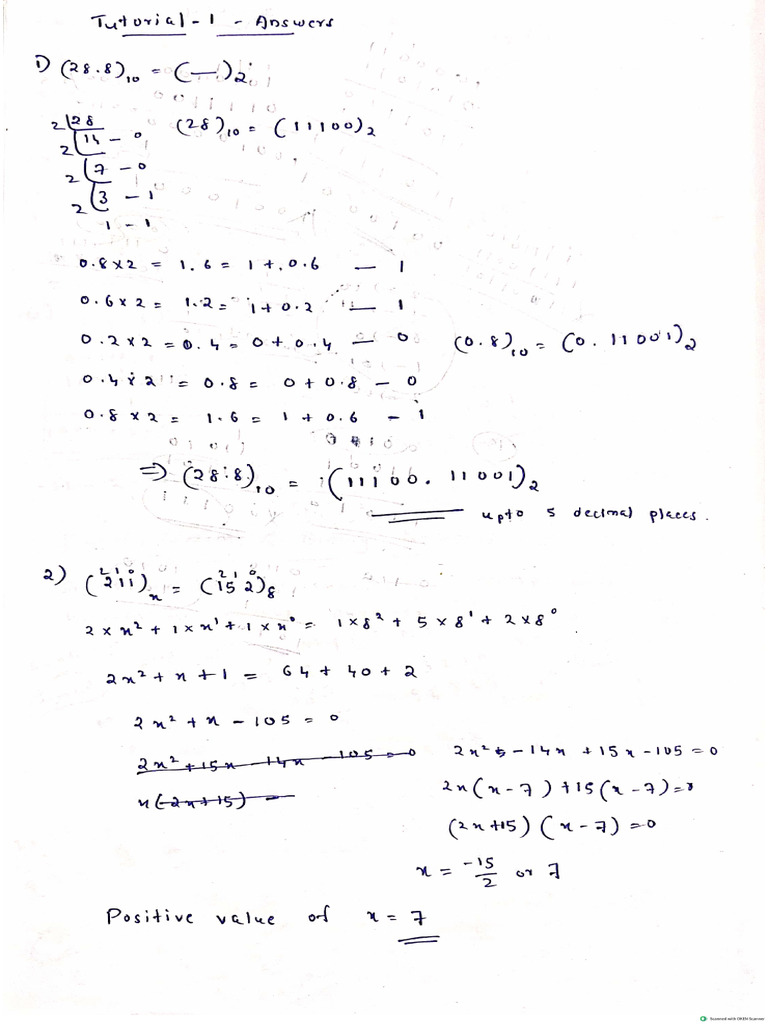 Tutorial-1 - Answers
1) (28.8)10 = (—)2
2 28
2 14 - 0 (28)10 = (11100)2
2 7 - 0
2 3 - 1
1 - 1
0.8×2 = 1.6 = 1+0.6 — 1
0.6×2 = 1.2 = 1+0.2 — 1
0.2×2 = 0.4 = 0+0.4 — 0 (0.8)10 = (0.11001)2
0.4×2 = 0.8 = 0+0.8 - 0
0.8×2 = 1.6 = 1+0.6 - 1
⇒ (28.8)10 = (11100.11001)2
upto 5 decimal places.
2) (211)x = (152)8
2 1 0 2 1 0
2×x²+1×x¹+1×x⁰ = 1×8²+5×8¹+2×8⁰
2x²+x+1 = 64+40+2
2x²+x-105=0
2x²+15x-14x-105=0 2x²-14x+15x-105=0
x(2x+15) = 2x(x-7)+15(x-7)=0
(2x+15)(x-7)=0
x = -15/2 or 7
Positive value of x = 7
Scanned with OKEN Scanner